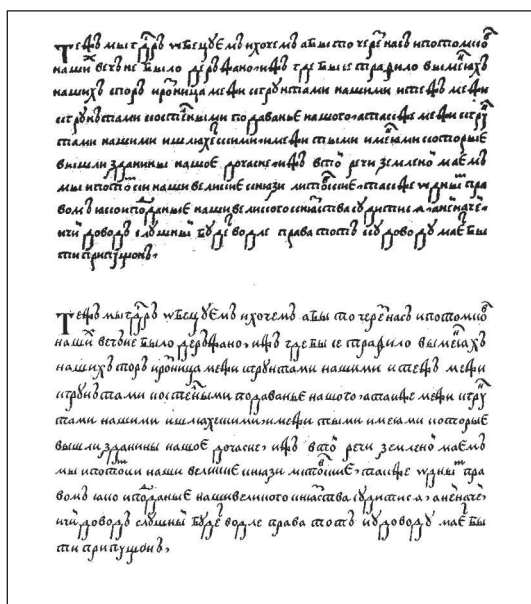 Тежъ мы гд҃ръ ѡбецуемъ и хочемъ абы то черезъ насъ и потомковъ
наши^х вечъне было держано, ижъ где бы се трафило вы менѧхъ
нашихъ споръ и рожница межи кгрунтами нашими и тежъ межи
кгрунътами костельными подаванье нашого, а также межи кгрун
тами нашими и шлѧхецкими, и межи тыми именѧми которые
вышли з данины нашое до часне, ижъ в то^м речи земленой маемъ
мы и потомки наши великие кнѧзи литовские, также ѡдны^м пра
вомъ ꙗко и по^дданые наши великого кнѧзства судитисѧ, а не иначе^й,
и чи^й доводъ слушны^й буде^т водле права тотъ ку доводу маеть бы
ти припущонъ,
Тежъ мы гд҃ръ ѡбецуемъ и хочемъ абы то черезъ насъ и потомковъ
наши^х вечъне было держано, ижъ где бы се трафило вы менѧхъ
нашихъ споръ и рожница межи кгрунтами нашими и тежъ межи
кгрунътами костельными подаванье нашого, а также межи кгрун
тами нашими и шлѧхецкими, и межи тыми именѧми которые
вышли з данины нашое до часне, ижъ в то^м речи земленой маемъ
мы и потомки наши великие кнѧзи литовские, также ѡдны^м пра
вомъ ꙗко и по^дданые наши великого кнѧзства судитисѧ, а не иначе^й,
и чи^й доводъ слушны^й буде^т водле права тотъ ку доводу маеть бы
ти припущонъ,